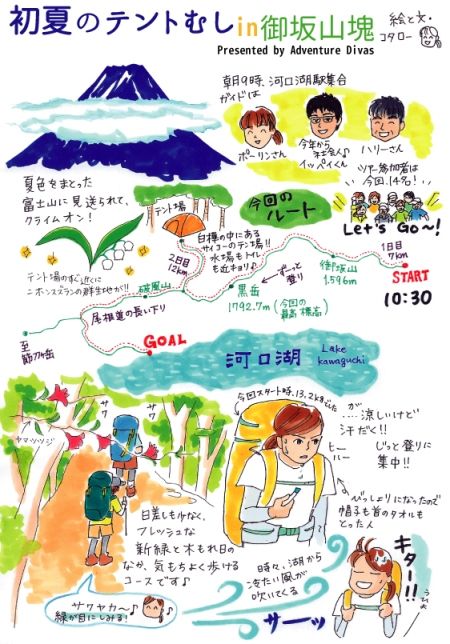 初夏のテントむしin御坂山塊
絵と文・
コタロー
Presented by Adventure Divas
朝9時、河口湖駅集合
ガイドは
ポーリンさん
今年から
社会人♪
イッペイくん
ハリーさん
ツアー参加者は
今回、14名!
Let's Go〜!
夏色をまとった
富士山に見送られて、
クライムオン!
テント場
今回の
ルート
白樺の中にある
サイコーのテン場!!
水場もトイレ
も近キョリ♪
2日目
12km
1日目
7km
START
10:30
御坂山
1.596m
ずーっと
登り
黒岳
1792.7m
(今回の
最高標高)
破風山
テント場のすぐ近くに
ニホンスズランの群生地が!!
尾根道の長い下り
GOAL
至
節刀ヶ岳
河口湖
Lake
kawaguchi
ヤマツツジ
サワ
サワ
今回スタート時、13.2kgでした
が
……涼しいけど
汗だく!!
じっと登りに
集中!!
ヒー
ハー
びっしょりになったので
帽子も首のタオルも
とった人
日差しも少なく、
フレッシュな
新緑と木もれ日の
なか、気もちよく歩ける
コースです♪
サワヤカ〜♪
緑が目にしみる!
時々、湖から
冷たい風が
吹いてくる
サーッ
キター!!